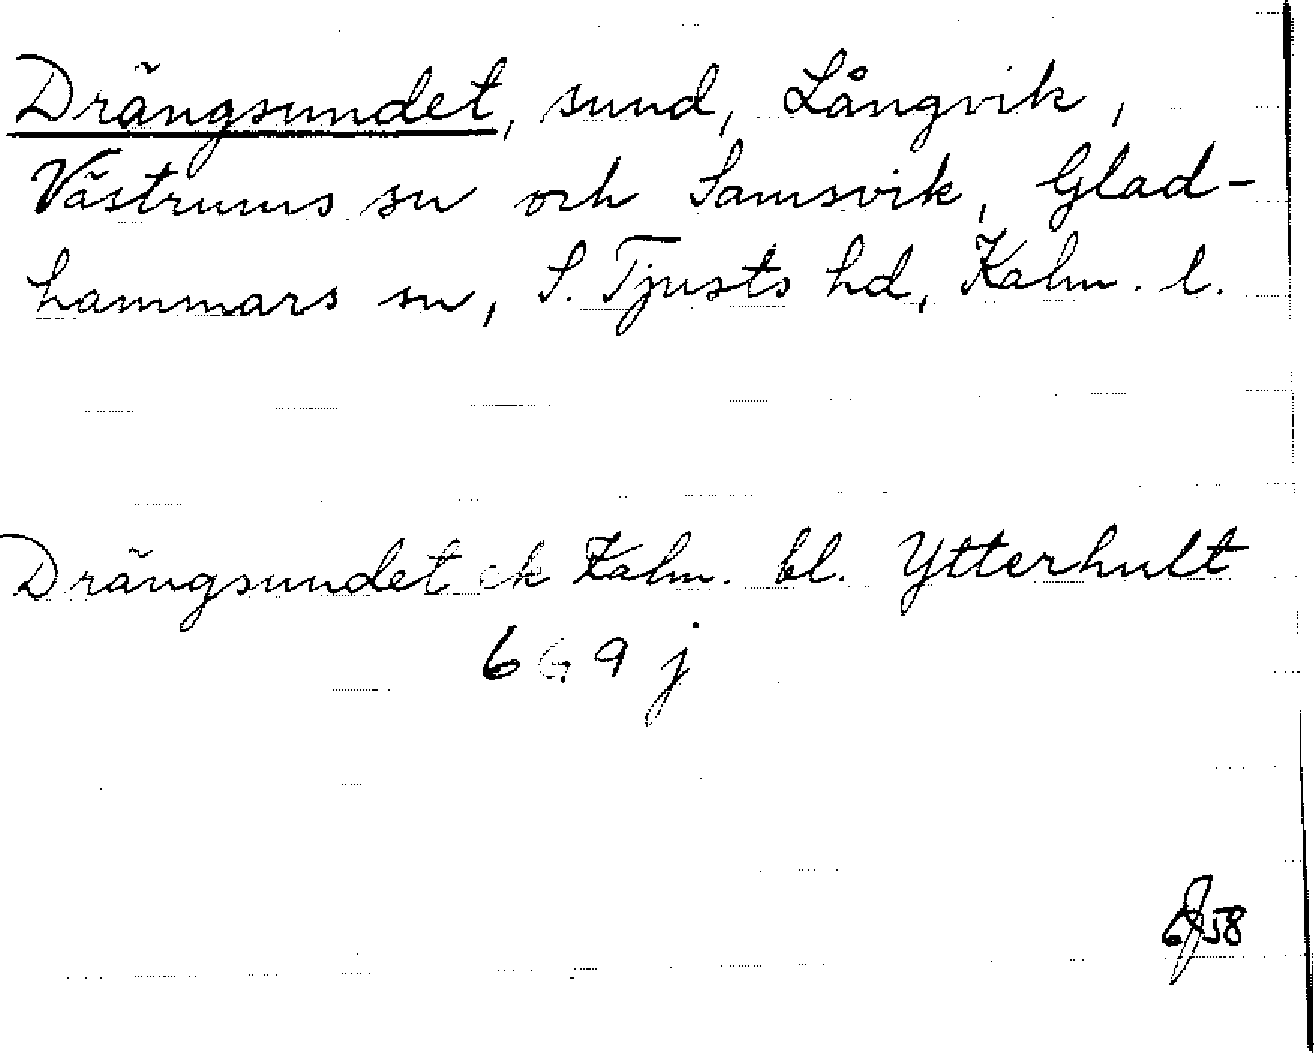 Drängsundet, sund, Långvik,
Västrums sn och Samsvik, Glad-
hammars sn, S. Tjusts hd, Kalm. l.
Drängsundet ek Kalm. bl. Ytterhult
6 G 9 j
58